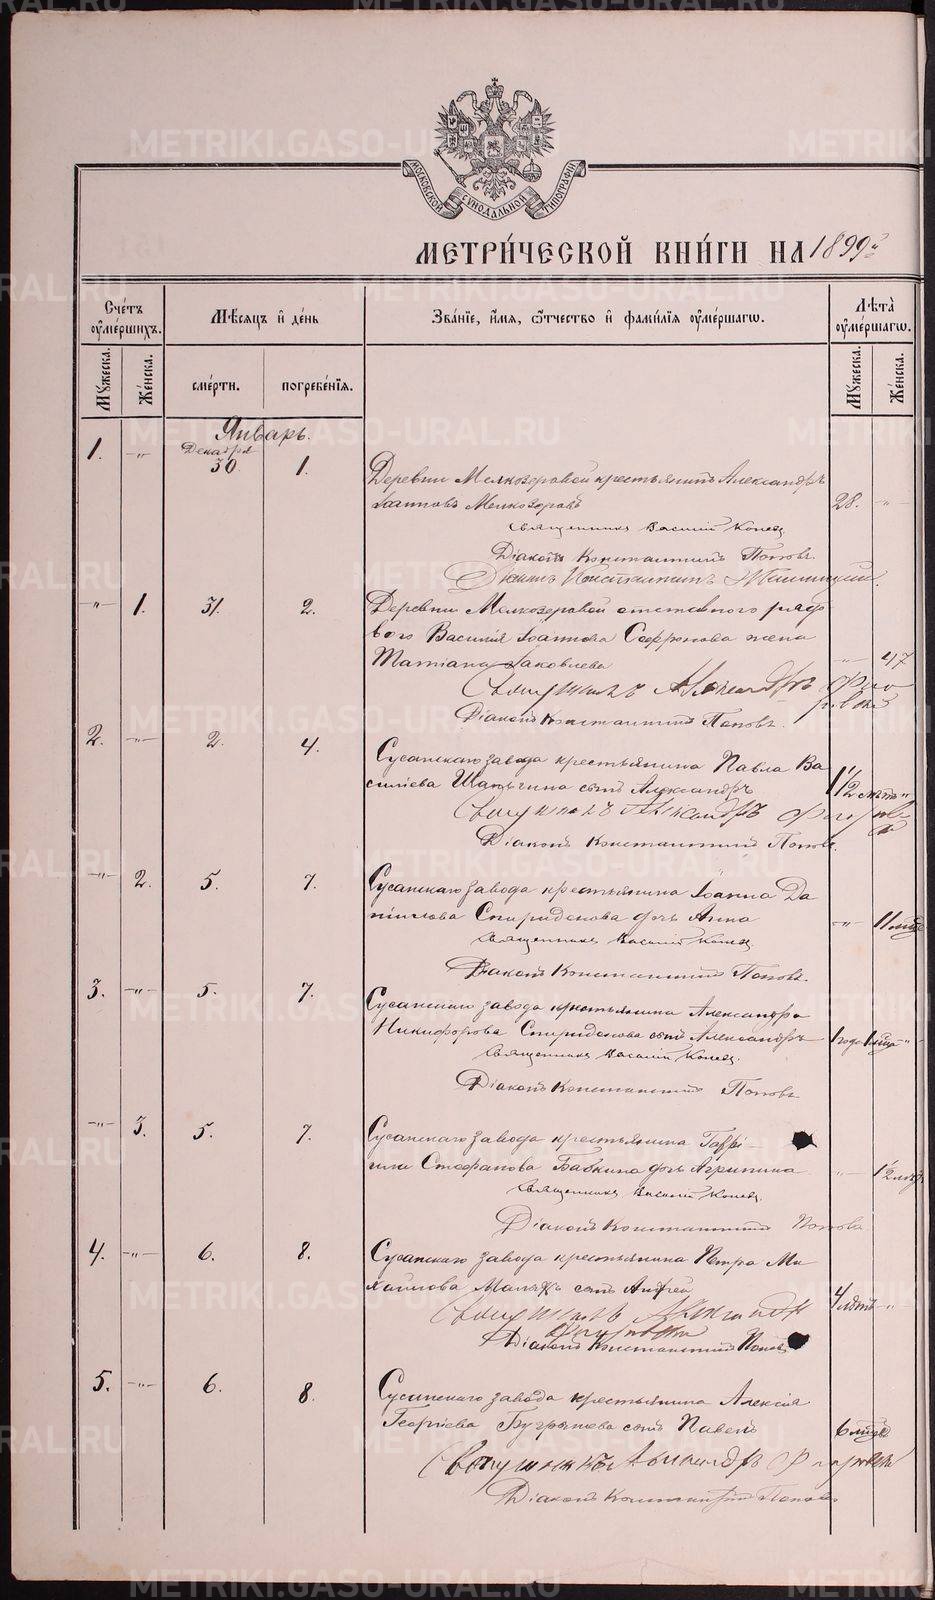 МОСКОВСКОЙ СѴНОДАЛЬНОЙ ТИПОГРАФІИ
МЕТРИ́ЧЕСКОЙ КНИ́ГИ НА 1899й
Сче́тъ ᲂу҆ме́ршихъ.
Мѣ́сяцъ и҆ де́нь
Зва́нїе, и҆́мѧ, ѻ҆́тчество и҆ фами́лїѧ ᲂу҆ме́ршагѡ.
Лѣта̀ ᲂу҆ме́ршагѡ
Мꙋ́жеска.
Же́нска.
сме́рти.
погребе́нїѧ.
Мꙋ́жеска.
Же́нска.
Январь.
1. -"- Декабря 30. 1.
Деревни Мелкозеровой крестьянинъ Александръ
Іоанновъ Мелкозеровъ 28. -"-
Священникъ Василій Конев
Діаконъ Константинъ Поповъ.
-"- 1. 31. 2.
Деревни Мелкозеровой отставного рядо
вого Василія Іоаннова Софронова жена
Татіана Іаковлева -"- 47
Священникъ Александръ
Діаконъ Константинъ Поповъ.
2. -"- 2. 4.
Сусанскаго завода крестьянина Павла Ва
силіева сынъ Александръ 1 1/2 -"-
Священникъ Александръ
Діаконъ Константинъ Поповъ.
-"- 2. 5. 7.
Сусанскаго завода крестьянина Іоанна Да
ніилова Спиридонова дочь Анна -"- 11 мѣся
Священникъ Василій Конев
Діаконъ Константинъ Поповъ.
3. -"- 5. 7.
Сусанскаго завода крестьянина Александра
Никифорова Спиридонова сынъ Александръ 1 годъ 1 мѣся -"-
Священникъ Василій Конев.
Діаконъ Константинъ Поповъ
-"- 3. 5. 7.
Сусанскаго завода крестьянина Гаврі-
ила Стефанова Бабкина дочь Агрипина -"- 1/2
Священникъ Василій Конев.
Діаконъ Константинъ Поповъ.
4. -"- 6. 8.
Сусанскаго завода крестьянина Петра Ми
хаилова сынъ Андрей 4 лѣтъ -"-
Священникъ Александръ
Діаконъ Константинъ Поповъ
5. -"- 6. 8.
Сусанскаго завода крестьянина Алексія
Георгіева сынъ Павелъ 6 мѣся
Священникъ Александръ
Діаконъ Константинъ Поповъ
METRIKI.GASO-URAL.RU